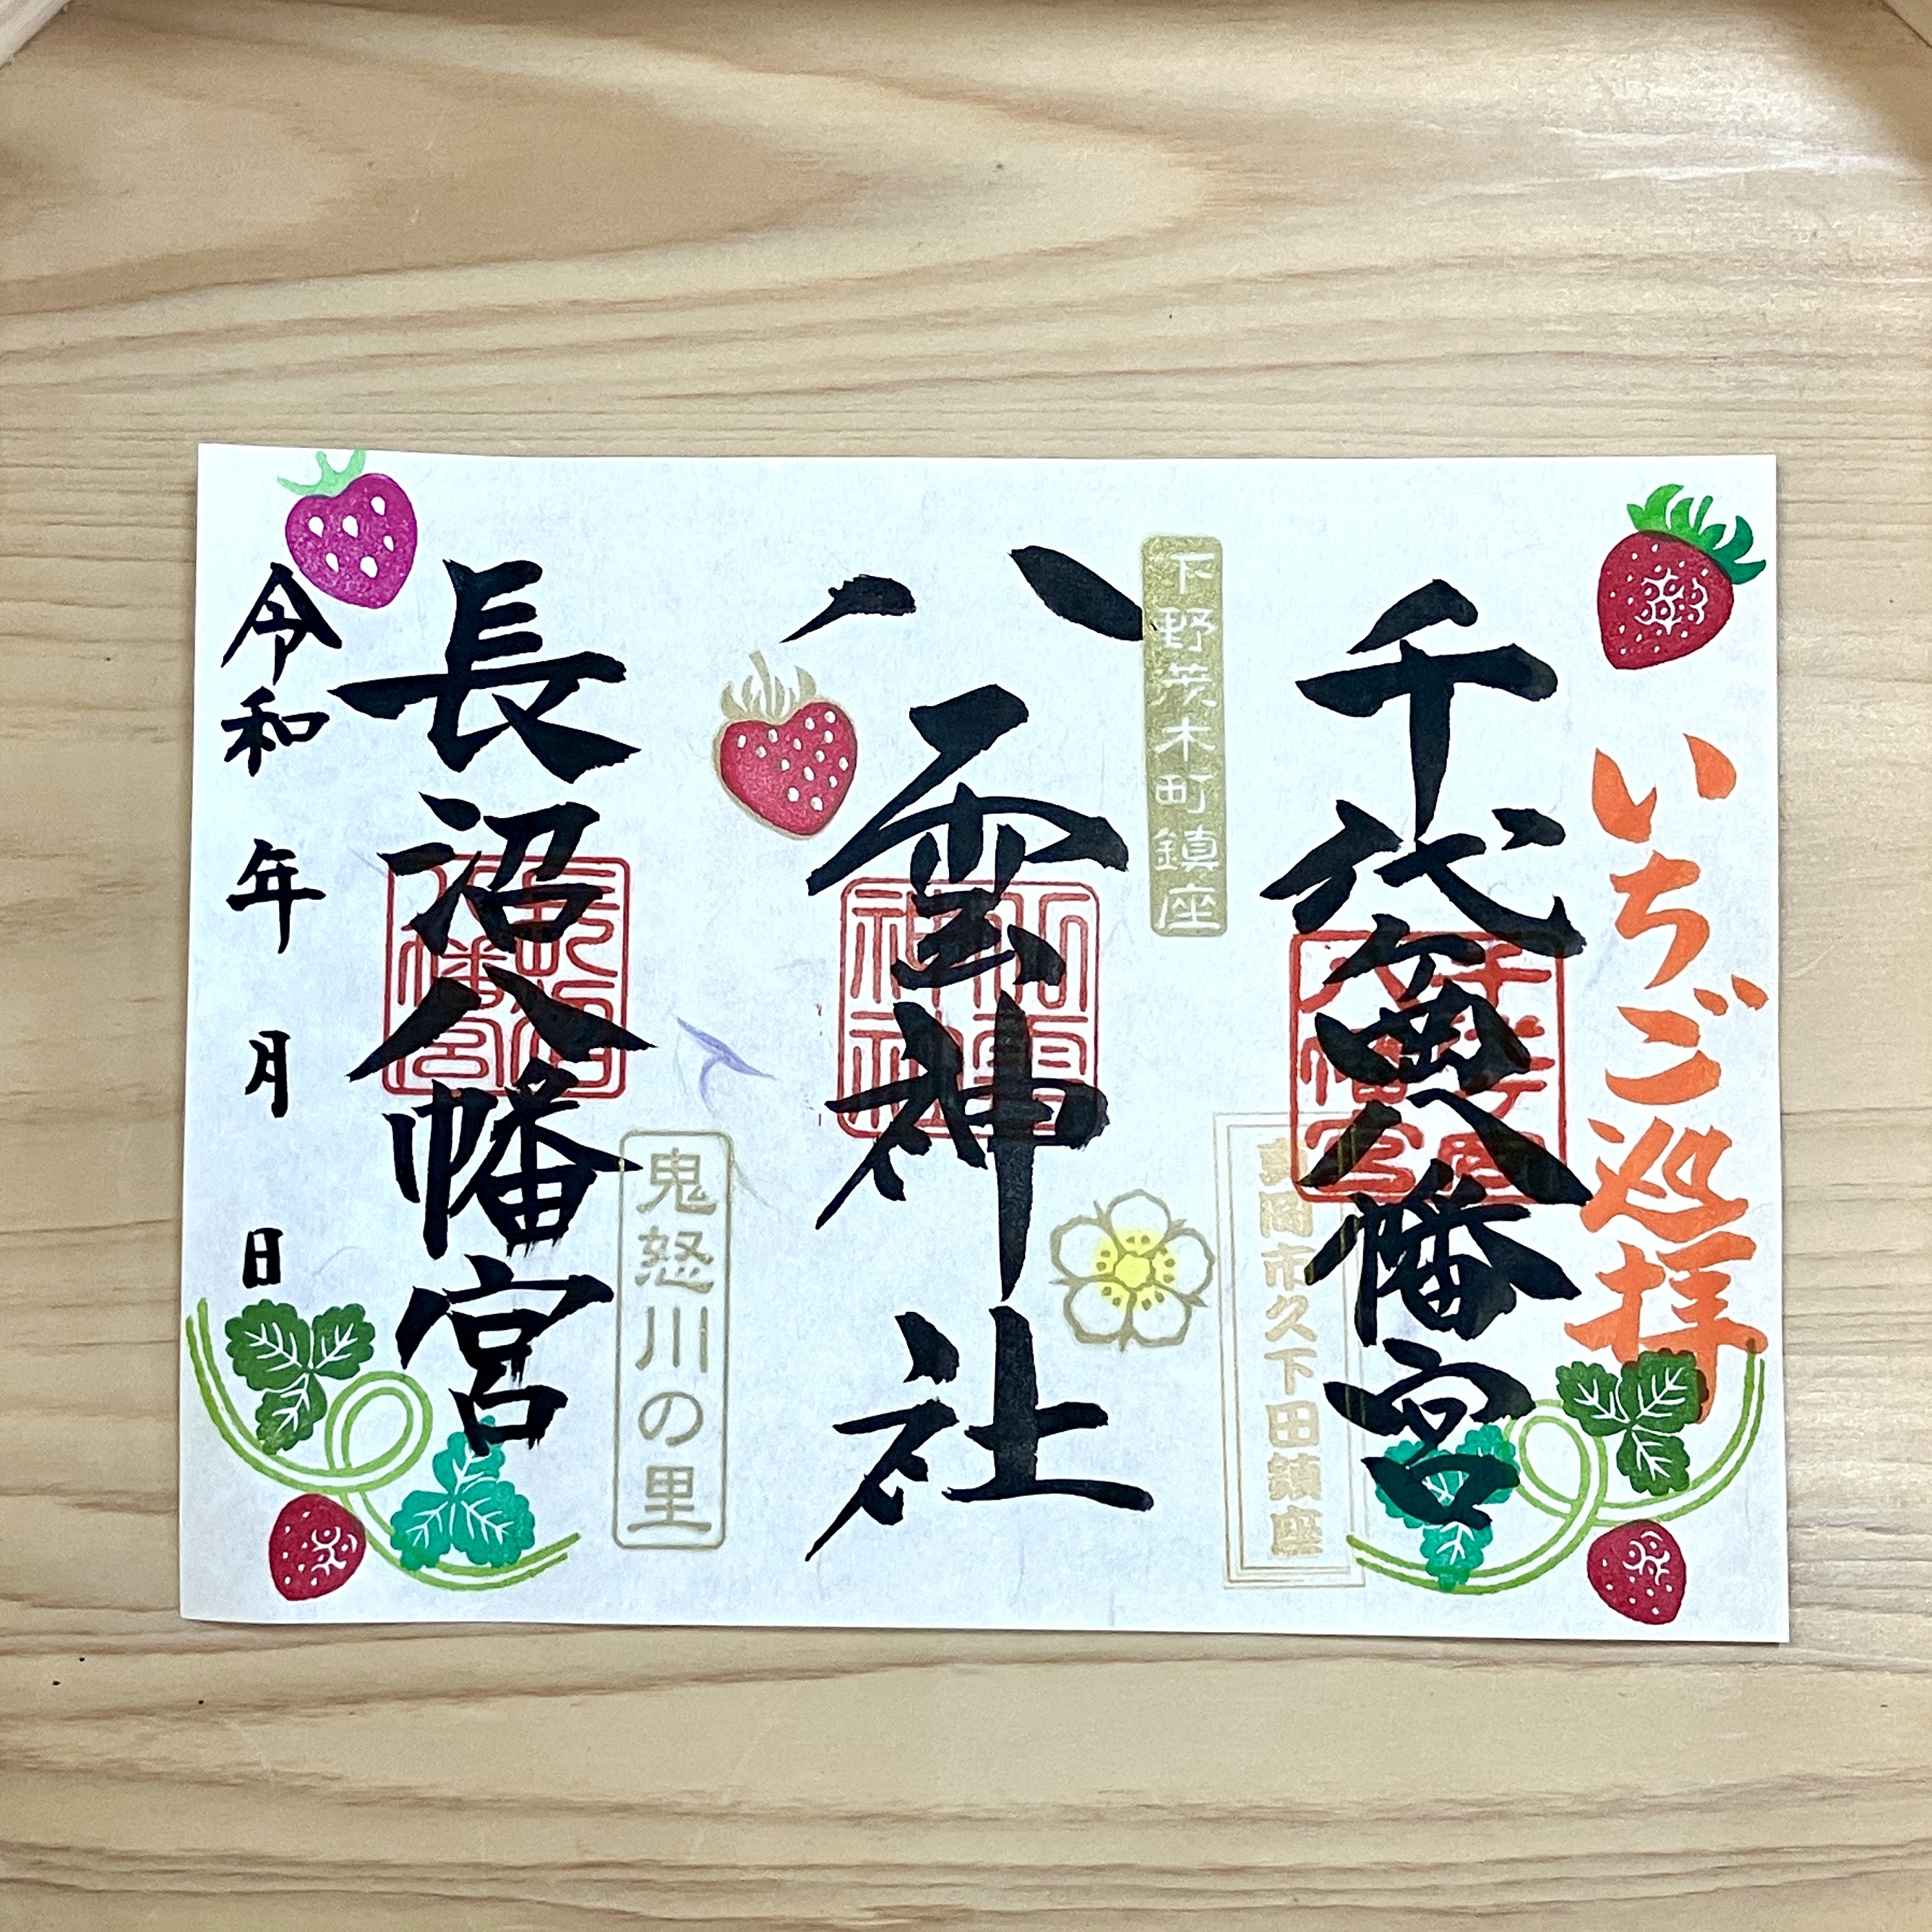 いちご巡拝
千代ヶ岡八幡宮
真岡市久下田鎮座
下野茂木町鎮座
八雲神社
鬼怒川の里
長沼八幡宮
令和 年 月 日